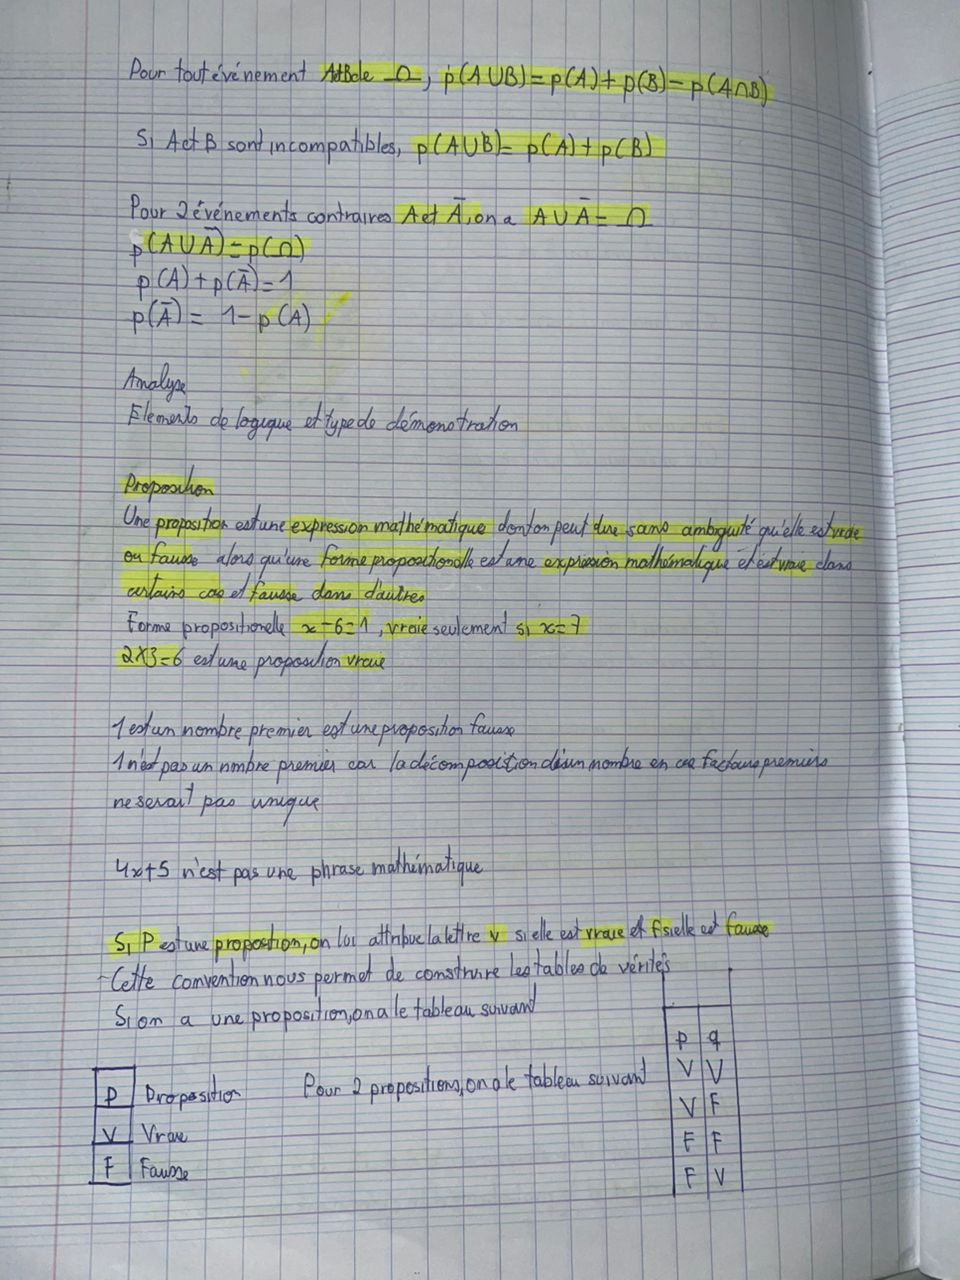 Pour tout événement A et B de Ω, p(A∪B)=p(A)+p(B)-p(A∩B)
Si A et B sont incompatibles, p(A∪B)= p(A)+p(B)
Pour 2 événements contraires A et Ā, on a A∪Ā= Ω
p(A∪Ā)=p(Ω)
p(A)+p(Ā)=1
p(Ā)= 1-p(A)
Analyse
Elements de logique et type de démonstration
Proposition
Une proposition est une expression mathématique dont on peut dire sans ambiguité qu'elle est vraie
ou fausse alors qu'une forme propositionelle est une expression mathématique et est vraie dans
certains cas et fausse dans d'autres
Forme propositionelle x-6=1, vraie seulement si x=7
2x3=6 est une proposition vraie
1 est un nombre premier est une proposition fausse
1 n'est pas un nmbre premier car la décomposition d'un nombre en facteurs premiers
ne serait pas unique
4x+5 n'est pas une phrase mathématique
Si P est une proposition, on lui attribue la lettre v si elle est vraie et f si elle est fausse
-Cette convention nous permet de construire les tables de vérités
Si on a une proposition, on a le tableau suivant
P Proposition
V Vraie
F Fausse
Pour 2 propositions, on a le tableau suivant
p q
V V
V F
F F
F V